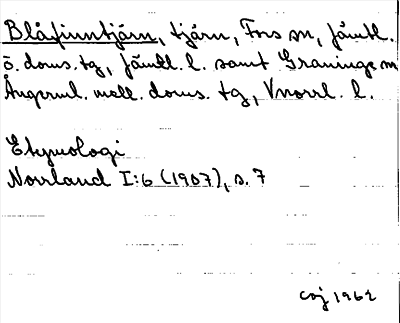 Blåfinntjärn, tjärn, Fors sn, Jämtl.
ö. doms. tg, Jämtl. l. samt Graninge sn
Ångerml. mell. doms. tg, Vnorrl. l.
Etymologi
Norrland I:6 (1907), s. 7
caj 1962